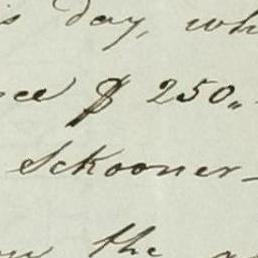 day, wh
$ 250„
Schooner
the